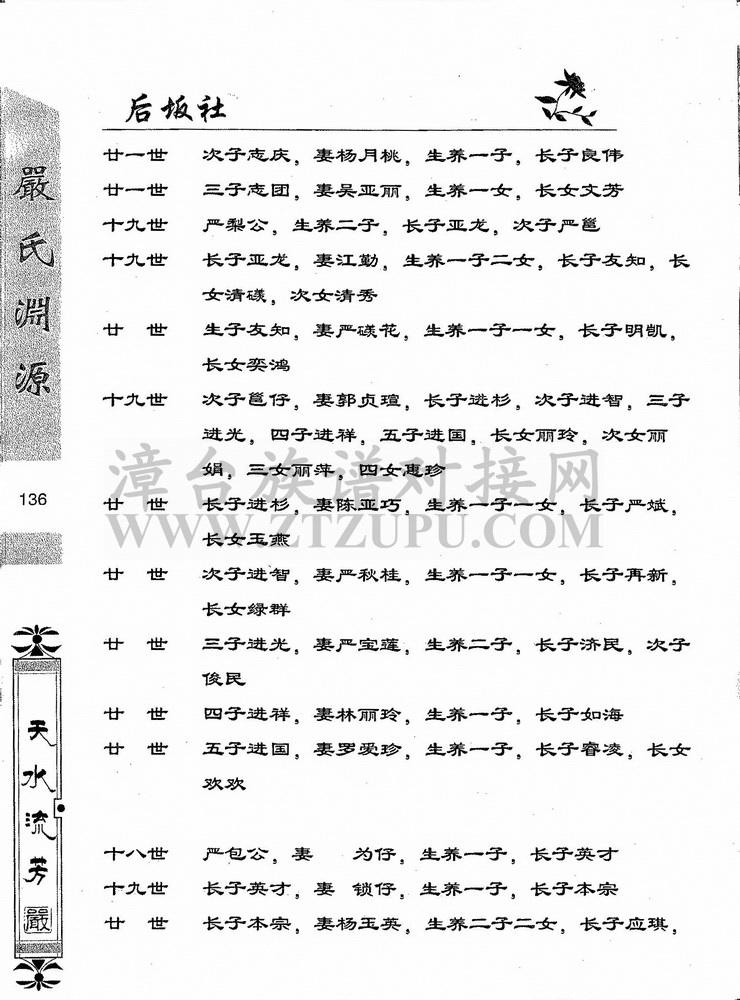 后坂社
廿一世 次子志庆，妻杨月桃，生养一子，长子良伟
廿一世 三子志团，妻吴亚丽，生养一女，长女文芳
十九世 严梨公，生养二子，长子亚龙，次子严邕
十九世 长子亚龙，妻江勤，生养一子二女，长子友知，长
女清礒，次女清秀
廿 世 生子友知，妻严礒花，生养一子一女，长子明凯，
长女奕鸿
十九世 次子邕仔，妻郭贞瑄，长子进杉，次子进智，三子
进光，四子进祥，五子进国，长女丽玲，次女丽
娟，三女丽萍，四女惠珍
廿 世 长子进杉，妻陈亚巧，生养一子一女，长子严斌，
长女玉燕
廿 世 次子进智，妻严秋桂，生养一子一女，长子再新，
长女绿群
廿 世 三子进光，妻严宝莲，生养二子，长子济民，次子
俊民
廿 世 四子进祥，妻林丽玲，生养一子，长子如海
廿 世 五子进国，妻罗爱珍，生养一子，长子睿凌，长女
欢欢
十八世 严包公，妻 为仔，生养一子，长子英才
十九世 长子英才，妻 锁仔，生养一子，长子本宗
廿 世 长子本宗，妻杨玉英，生养二子二女，长子应琪，
嚴氏淵源
136
天水流芳
嚴
漳台族谱对接网
WWW.ZTZUPU.COM